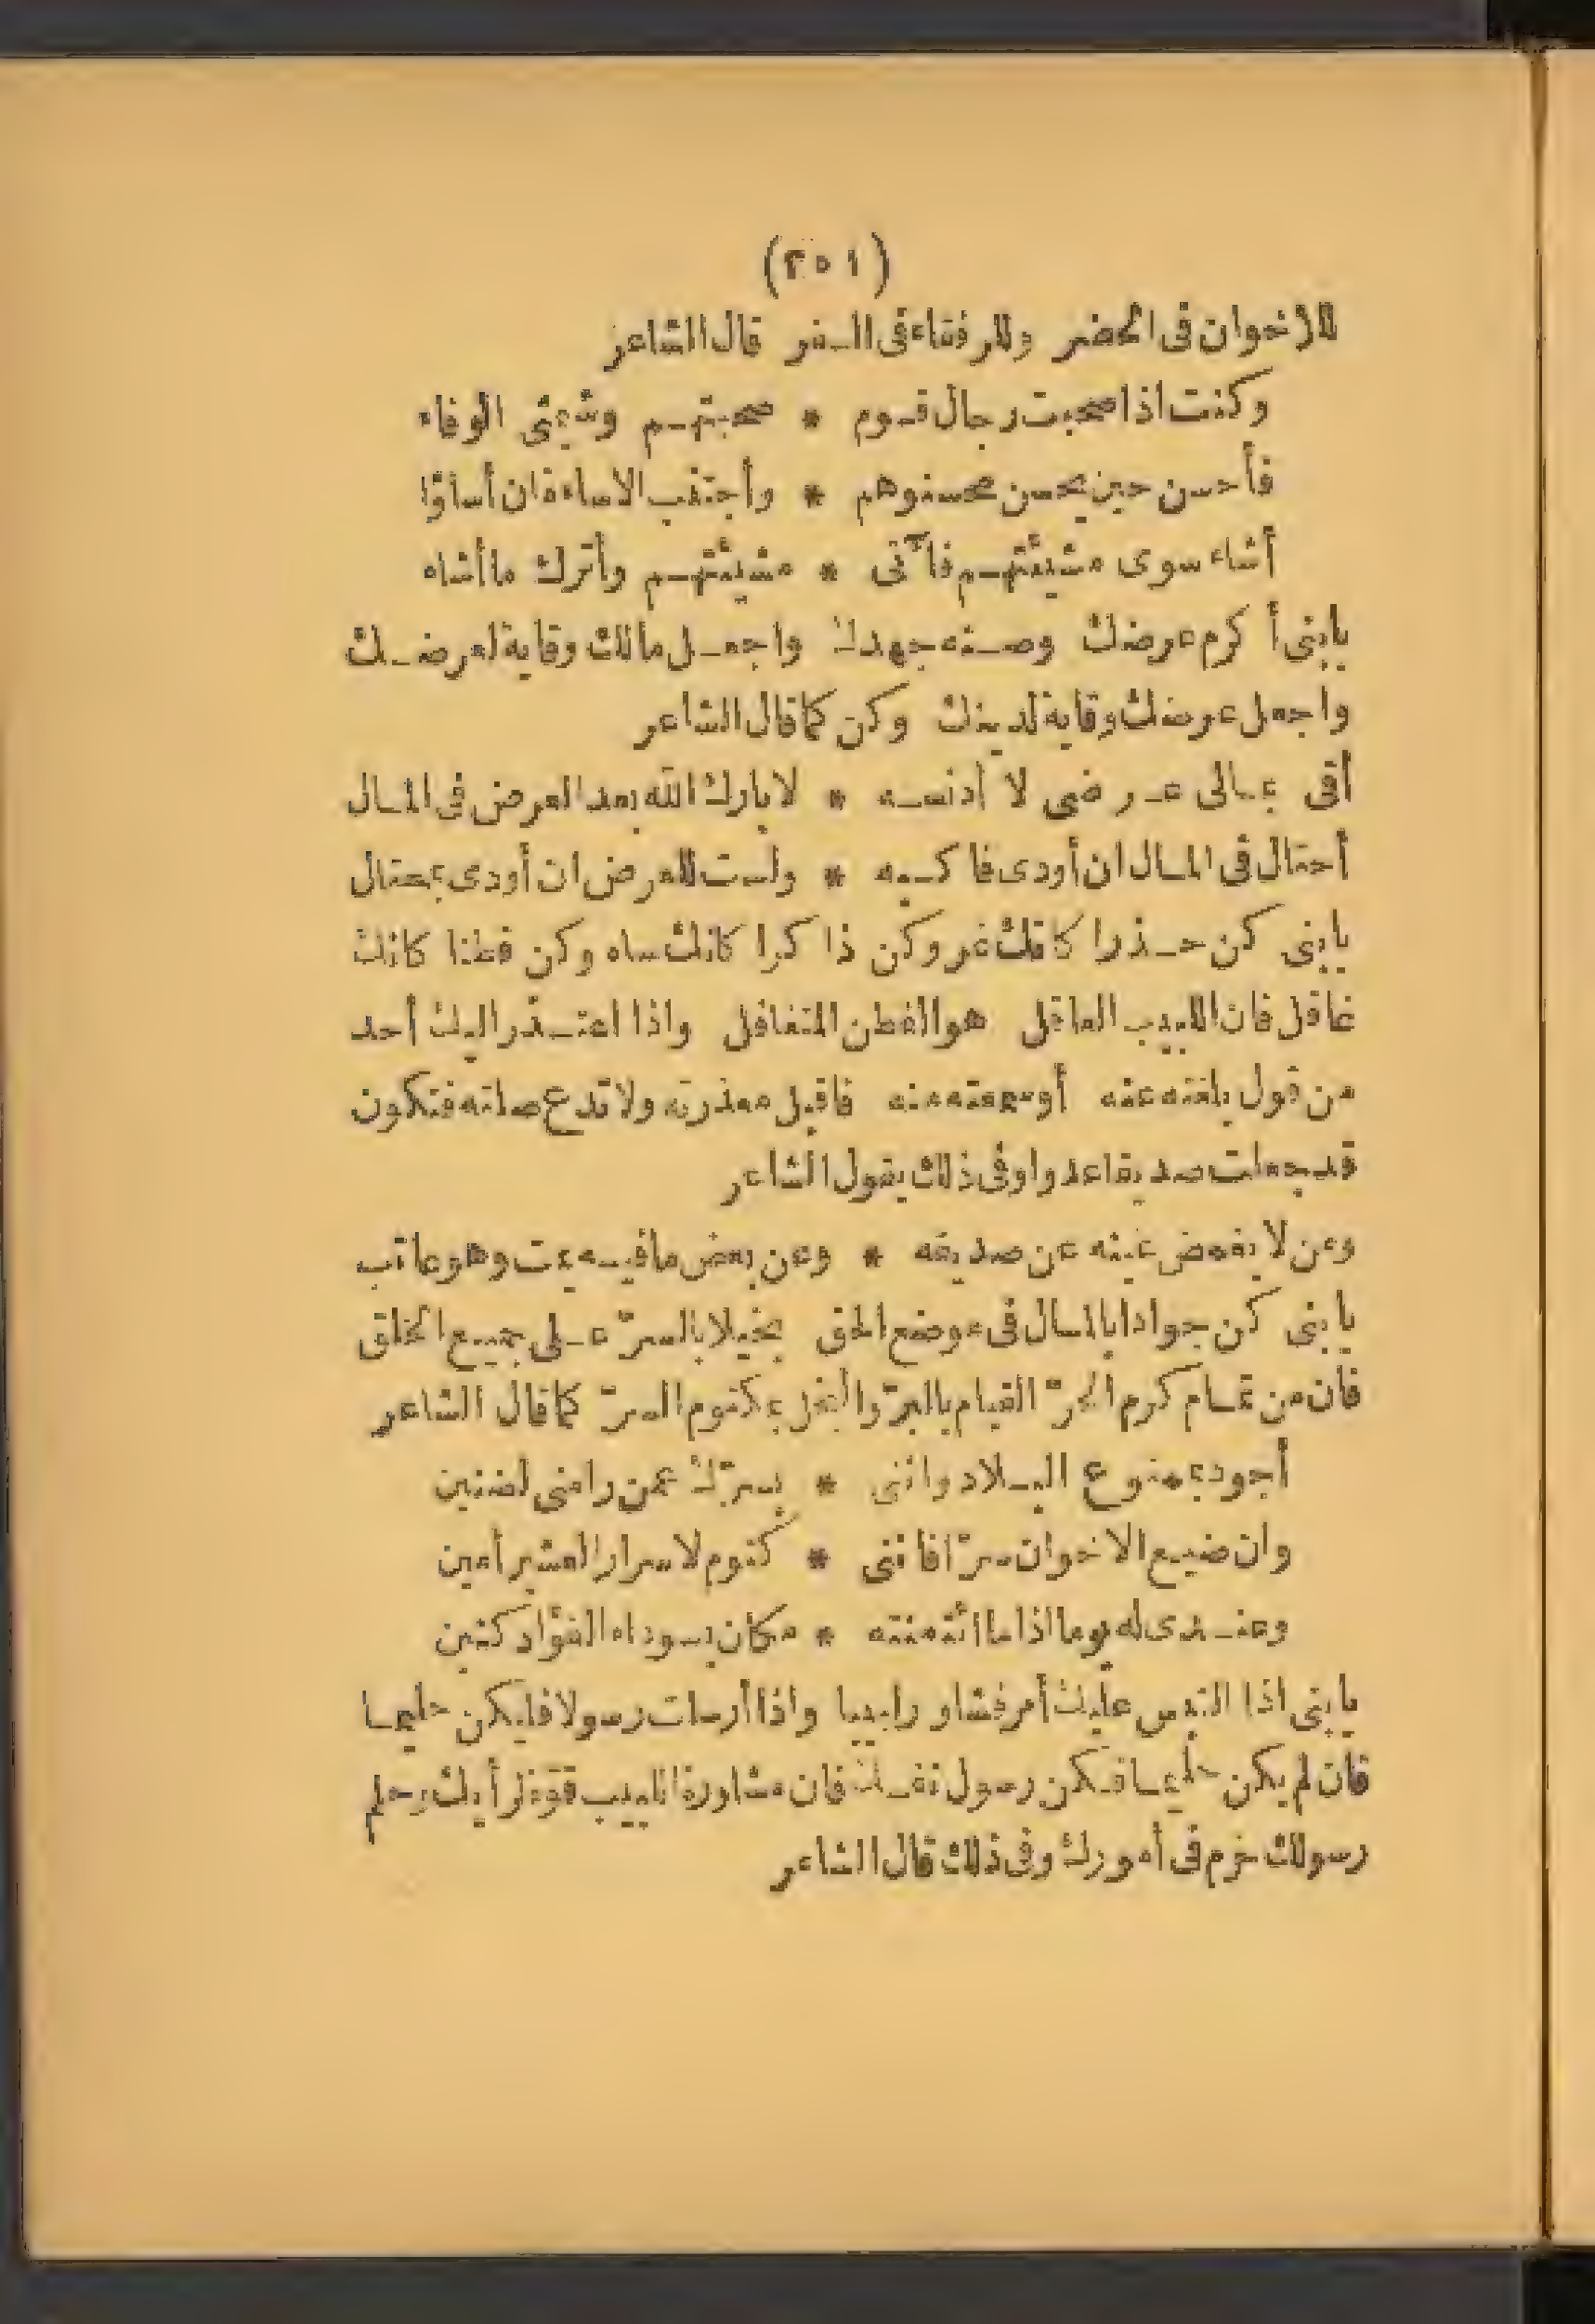 (٢٥١)
للاخوان فى الحضر وللرفقاء فى السفر قال الشاعر
وكنت اذا صحبت رجال قوم * صحبتهم وشيمتى الوفاء
فأحسن حين يحسن محسنوهم * وأجتنب الاساءة ان أساؤا
أشاء سوى مشيئتهم فاآتى * مشيئتهم وأترك ما أشاء
يا بنى أكرم عرضك وصنه جهدك واجعل مالك وقاية لعرضك
واجعل عرضك وقاية لدينك وكن كما قال الشاعر
أقى بمالى عرضى لا أدنسه * لا بارك الله بعد العرض فى المال
أحتال فى المال ان أودى فاكسبه * ولست للعرض ان أودى بمحتال
يا بنى كن حذرا كانك غر وكن ذاكرا كانك ساه وكن فطنا كانك
غافل فان اللبيب العاقل هو الفطن المتغافل واذا اعتذر اليك أحد
من قول بلغته عنه أو سمعته منه فاقبل معذرته ولا تدع صلته فتكون
قد جعلت صديقا عدوا وفى ذلك يقول الشاعر
ومن لا يغمض عينه عن صديقه * وعن بعض ما فيه يمت وهو عاتب
يا بنى كن جوادا بالمال فى موضع الحق بخيلا بالسرّ على جميع الخلق
فان من تمام كرم الحرّ القيام بالبرّ والبخل بمكتوم السرّ كما قال الشاعر
أجود بممنوع البلاد واننى * بسرّك عمن رامنى لضنين
وان ضيع الاخوان سرّا فاننى * كتوم لاسرار العشير أمين
وعندى له يوما اذا ما ائتمنته * مكان بسوداء الفؤاد كنين
يا بنى اذا التبس عليك أمر فشاور لبيبا واذا أرسلت رسولا فليكن حليما
فان لم يكن حليما فكن رسول نفسك فان مشاورة اللبيب قوّة لرأيك وحلم
رسولك حزم فى أمورك وفى ذلك قال الشاعر